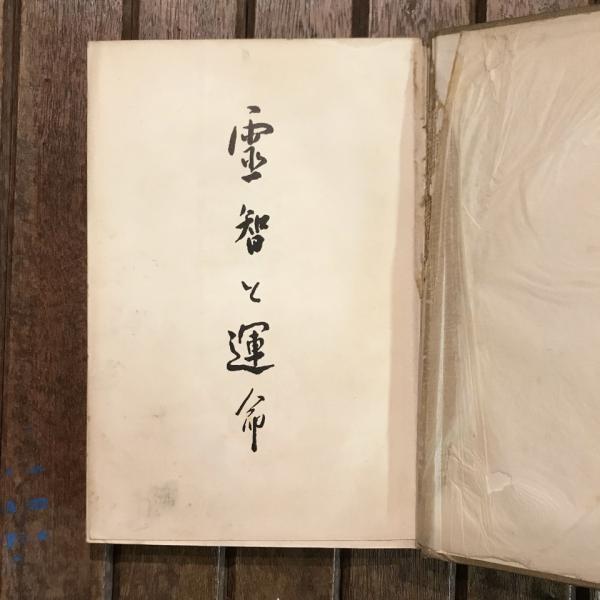 靈智と運命